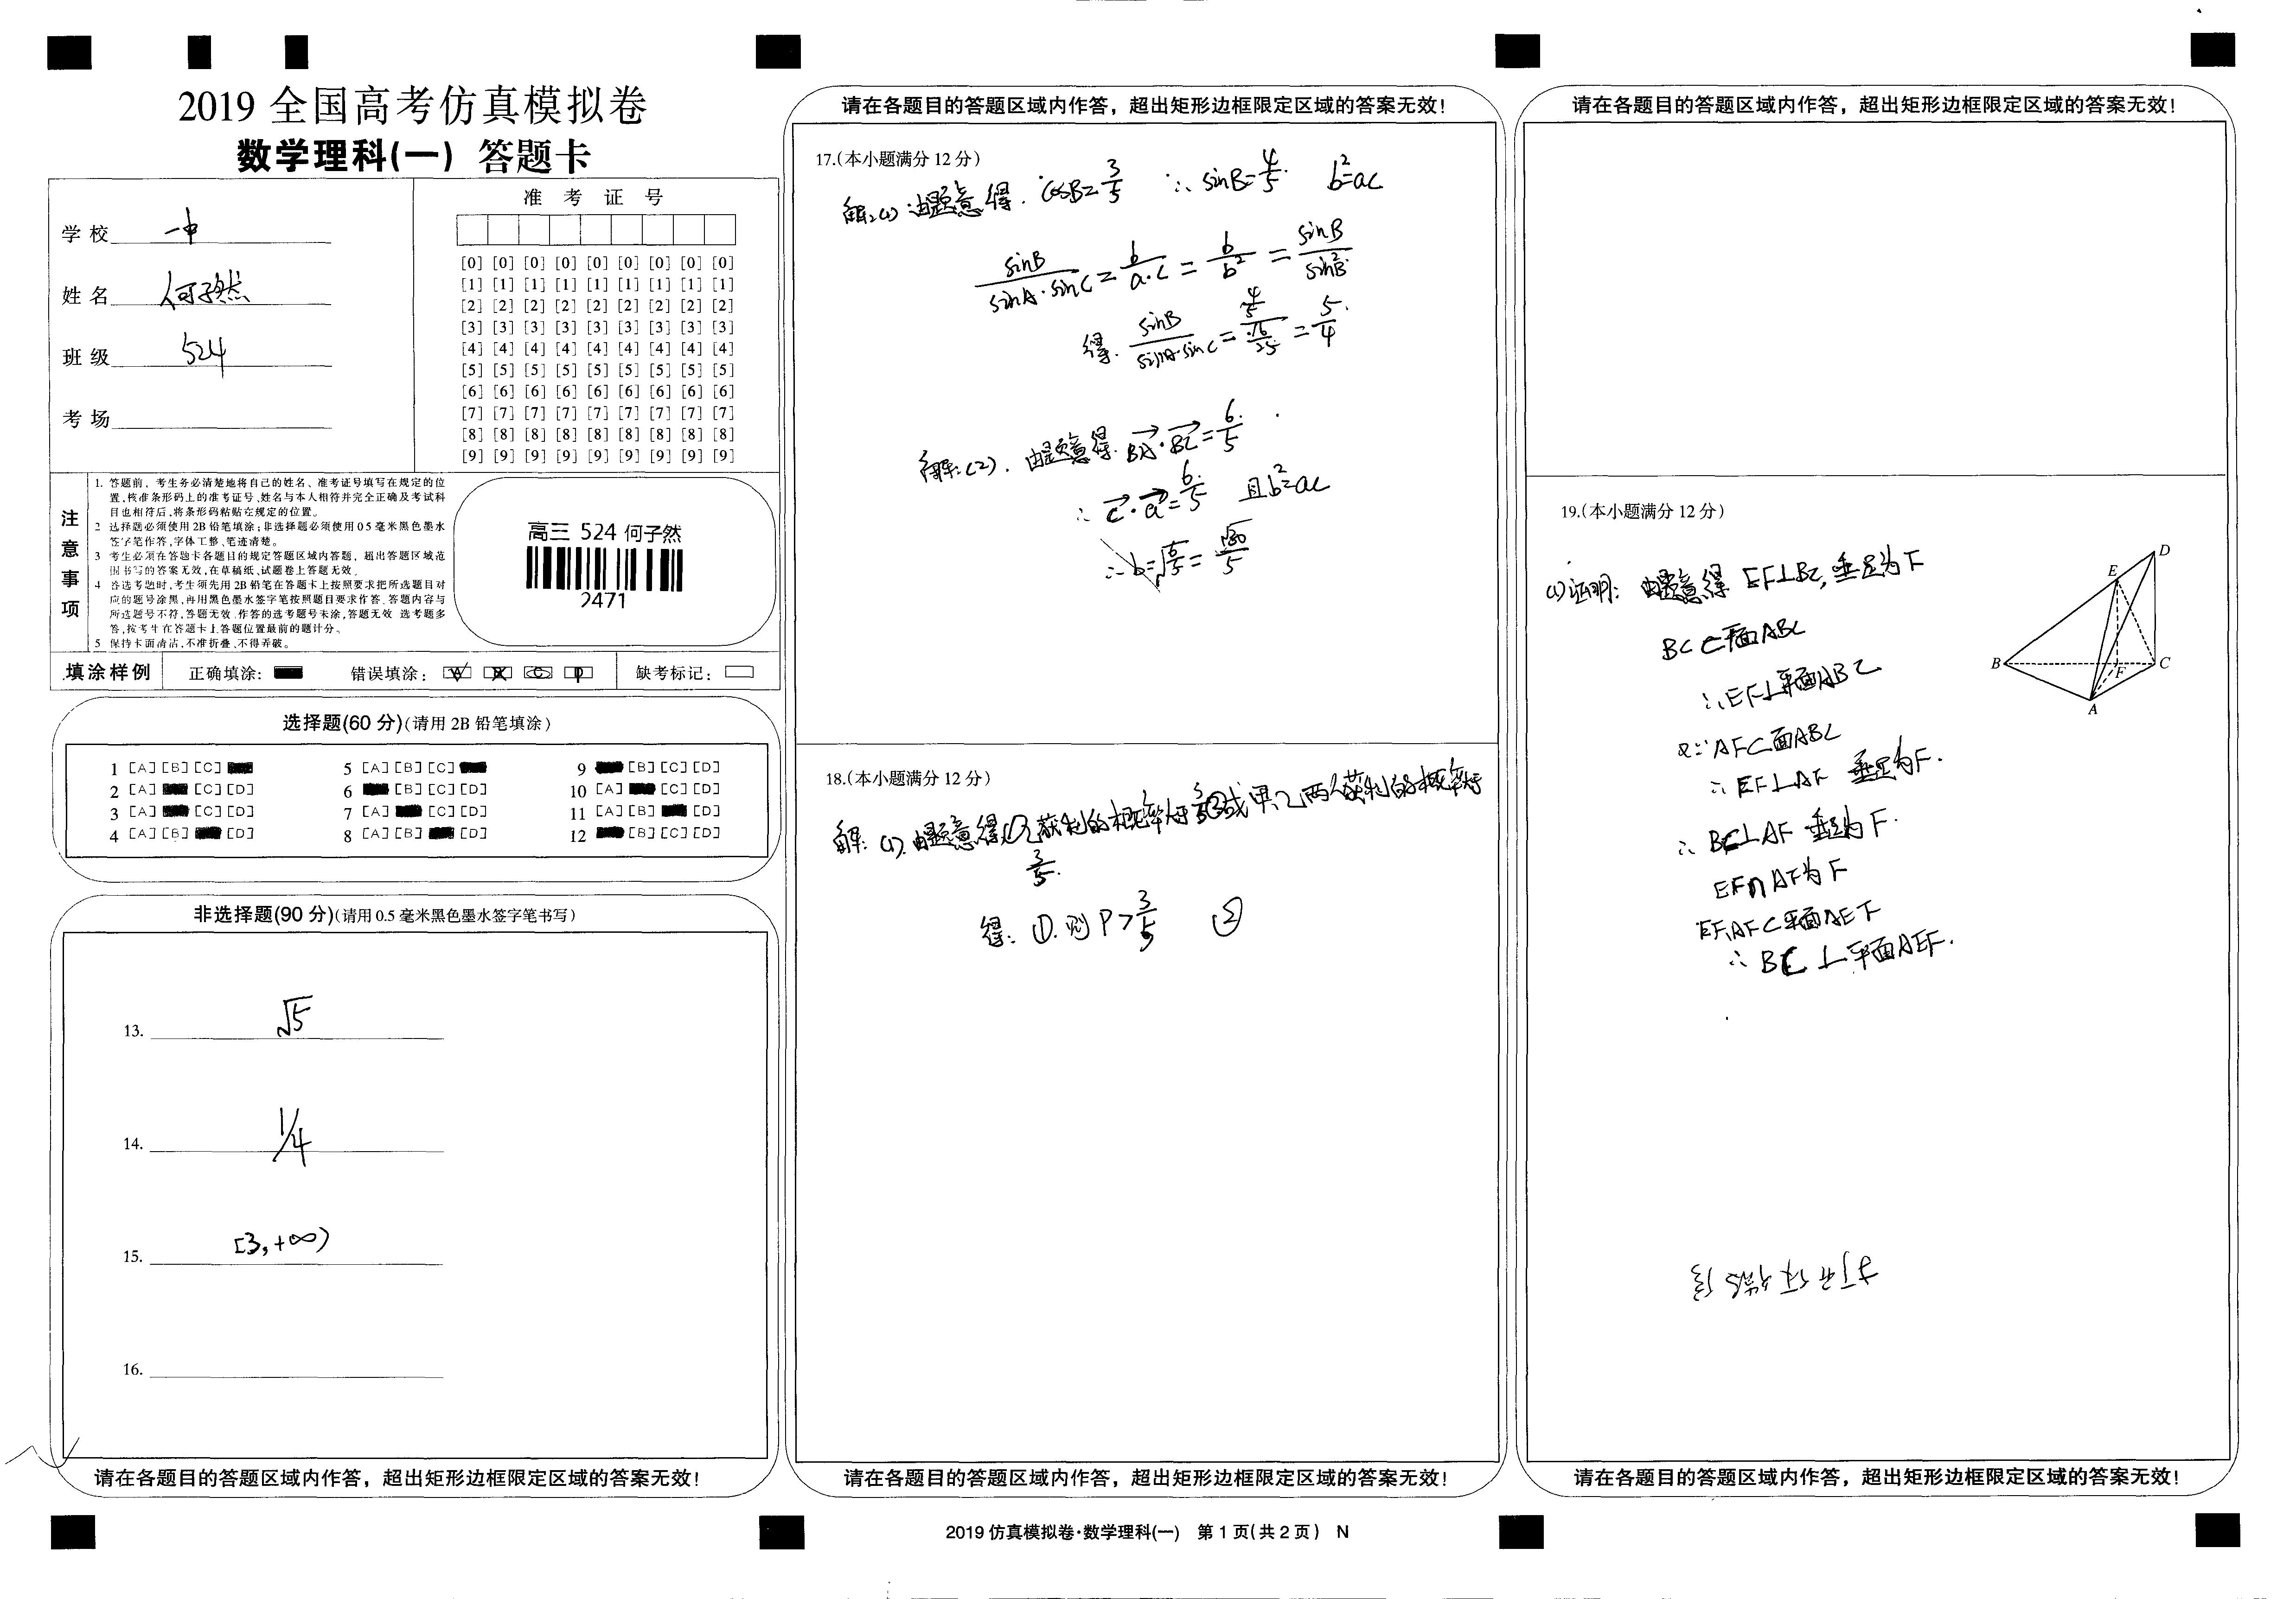 2019 全国高考仿真模拟卷
数学理科(一) 答题卡
学校 一中
姓名 何子然
班级 524
考场
准 考 证 号
[0] [0] [0] [0] [0] [0] [0] [0] [0]
[1] [1] [1] [1] [1] [1] [1] [1] [1]
[2] [2] [2] [2] [2] [2] [2] [2] [2]
[3] [3] [3] [3] [3] [3] [3] [3] [3]
[4] [4] [4] [4] [4] [4] [4] [4] [4]
[5] [5] [5] [5] [5] [5] [5] [5] [5]
[6] [6] [6] [6] [6] [6] [6] [6] [6]
[7] [7] [7] [7] [7] [7] [7] [7] [7]
[8] [8] [8] [8] [8] [8] [8] [8] [8]
[9] [9] [9] [9] [9] [9] [9] [9] [9]
注意事项
1. 答题前，考生务必清楚地将自己的姓名、准考证号填写在规定的位
置,核准条形码上的准考证号、姓名与本人相符并完全正确及考试科
目也相符后,将条形码粘贴在规定的位置。
2 选择题必须使用2B铅笔填涂;非选择题必须使用0.5毫米黑色墨水
签字笔作答,字体工整、笔迹清楚。
3 考生必须在答题卡各题目的规定答题区域内答题，超出答题区域范
围书写的答案无效,在草稿纸、试题卷上答题无效.
4 答选考题时,考生须先用2B铅笔在答题卡上按照要求把所选题目对
应的题号涂黑,再用黑色墨水签字笔按照题目要求作答.答题内容与
所选题号不符,答题无效.作答的选考题号未涂,答题无效 选考题多
答,按考生在答题卡上答题位置最前的题计分。
5 保持卡面清洁,不准折叠、不得弄破。
高三 524 何子然
2471
填涂样例 正确填涂: 错误填涂: 缺考标记:
选择题(60 分)(请用 2B 铅笔填涂)
1 [A] [B] [C] 5 [A] [B] [C] 9 [B] [C] [D]
2 [A] [C] [D] 6 [B] [C] [D] 10 [A] [C] [D]
3 [A] [C] [D] 7 [A] [C] [D] 11 [A] [B] [D]
4 [A] [B] [D] 8 [A] [B] [D] 12 [B] [C] [D]
非选择题(90 分)(请用 0.5 毫米黑色墨水签字笔书写)
13. √5
14. 1/4
15. [3,+∞)
16.
请在各题目的答题区域内作答，超出矩形边框限定区域的答案无效!
请在各题目的答题区域内作答，超出矩形边框限定区域的答案无效!
17.(本小题满分 12 分)
解:(1) 由题意得. cosB=3/5 ∴ sinB=4/5 b²=ac
sinB/(sinA·sinC) = b/(a·c) = b/b² = sinB/sin²B
得. sinB/(sinA·sinC) = (4/5)/(16/25) = 5/4
解:(2). 由题意得. BA·BC=6/5
∴ c·a=6/5 且b²=ac
∴ b=√(6/5)=√30/5
18.(本小题满分 12 分)
解: (1). 由题意得,①乙获利的概率大于3/5②或甲,乙两人获利的概率大于
3/5.
得: ①.则 P>3/5 ②
请在各题目的答题区域内作答，超出矩形边框限定区域的答案无效!
2019 仿真模拟卷·数学理科(一) 第 1 页(共 2 页) N
请在各题目的答题区域内作答，超出矩形边框限定区域的答案无效!
19.(本小题满分 12 分)
D
E
B
F
C
A
(1)证明: 由题意得 EF⊥BC,垂足为F
BC⊂平面ABC
∴EF⊥平面ABC
又∵AF⊂面ABC
∴EF⊥AF 垂足为F.
∴ BC⊥AF 垂足为F.
EF∩AF为F
EF,AF⊂平面AEF
∴ BC⊥平面AEF.
请在各题目的答题区域内作答，超出矩形边框限定区域的答案无效!